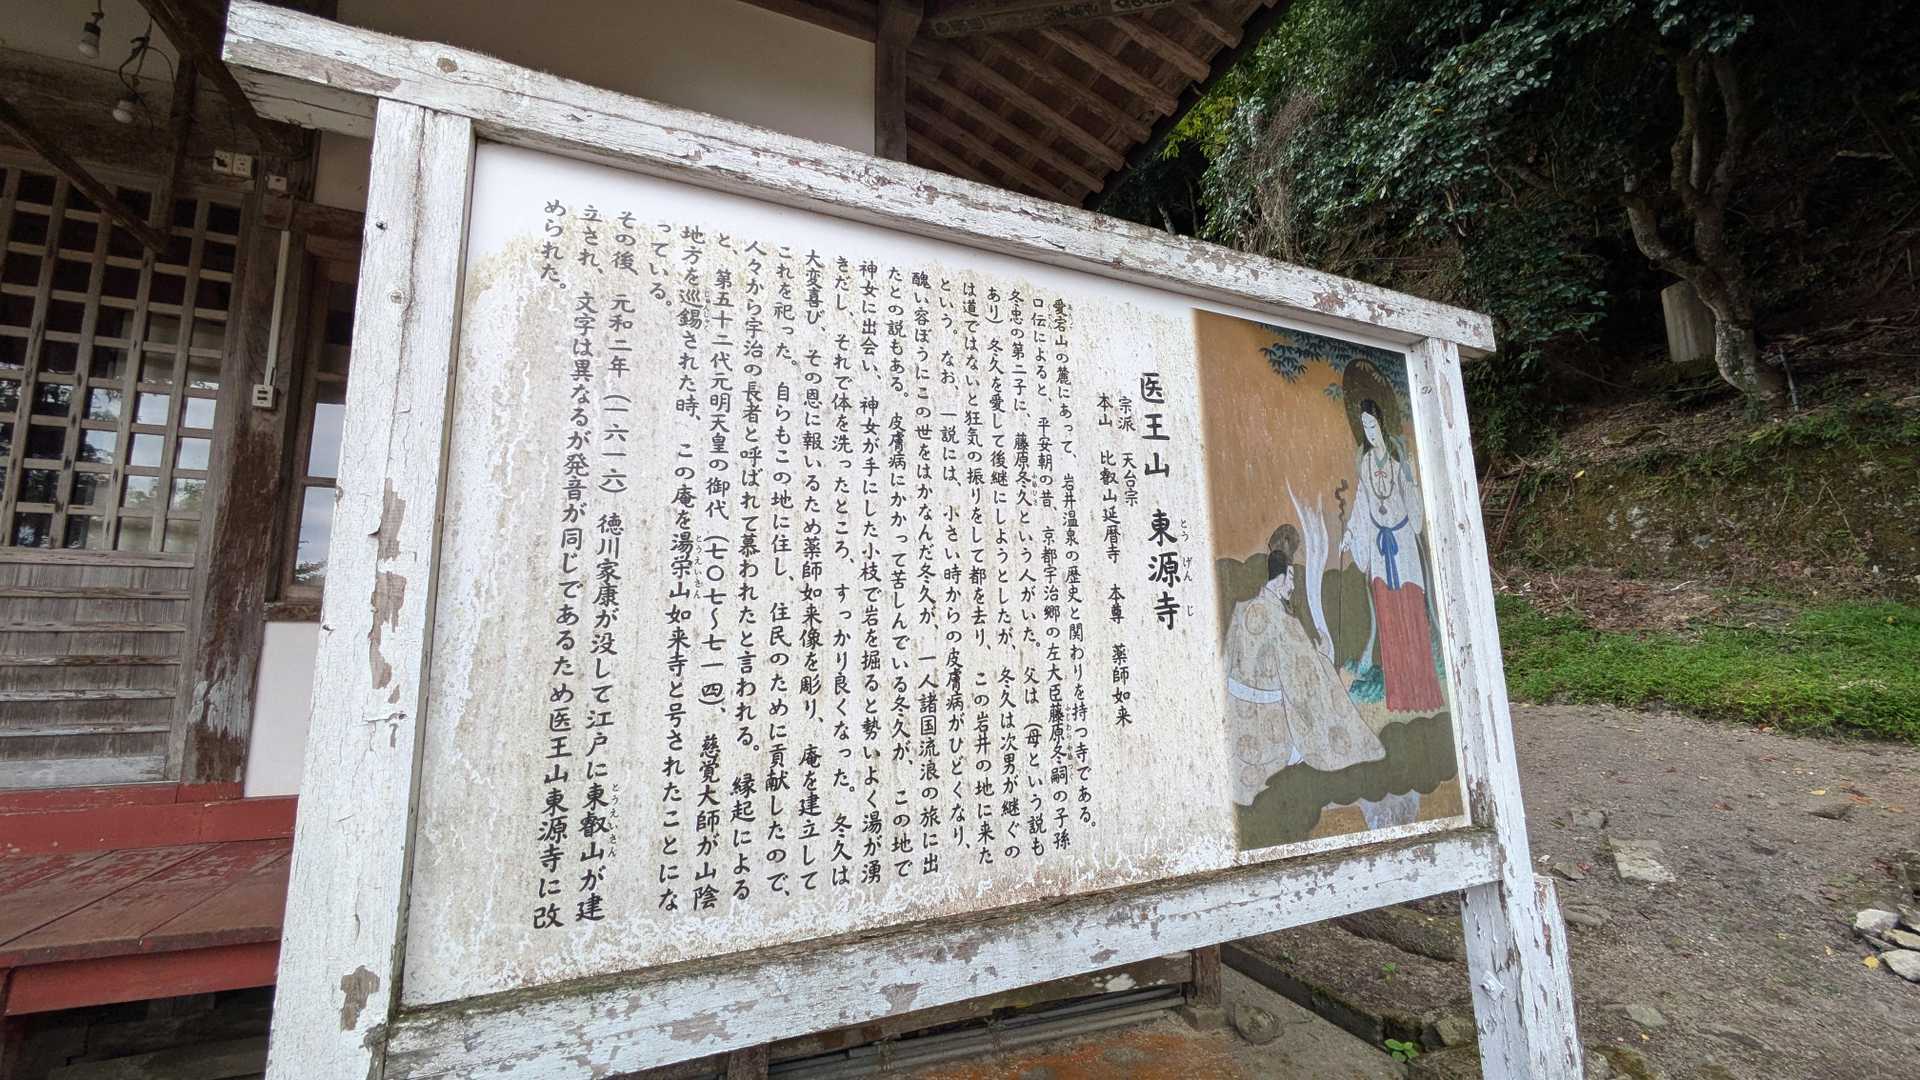 医王山　東源寺
とうげんじ
宗派　天台宗
本山　比叡山延暦寺　本尊　薬師如来
愛宕山の麓にあって、岩井温泉の歴史と関わりを持つ寺である。
口伝によると、平安朝の昔、京都宇治郷の左大臣藤原冬嗣の子孫
冬忠の第二子に、藤原冬久という人がいた。父は（母という説も
あり）冬久を愛して後継にしようとしたが、冬久は次男が継ぐの
は道ではないと狂気の振りをして都を去り、この岩井の地に来た
という。なお、一説には、小さい時からの皮膚病がひどくなり、
醜い容ぼうにこの世をはかなんだ冬久が、一人諸国流浪の旅に出
たとの説もある。皮膚病にかかって苦しんでいる冬久が、この地で
神女に出会い、神女が手にした小枝で岩を掘ると勢いよく湯が湧
きだし、それで体を洗ったところ、すっかり良くなった。冬久は
大変喜び、その恩に報いるため薬師如来像を彫り、庵を建立して
これを祀った。自らもこの地に住し、住民のために貢献したので、
人々から宇治の長者と呼ばれて慕われたと言われる。縁起による
と、第五十二代元明天皇の御代（七〇七〜七一四）、慈覚大師が山陰
地方を巡錫された時、この庵を湯栄山如来寺と号されたことにな
っている。
その後、元和二年（一六一六）徳川家康が没して江戸に東叡山が建
立され、文字は異なるが発音が同じであるため医王山東源寺に改
められた。